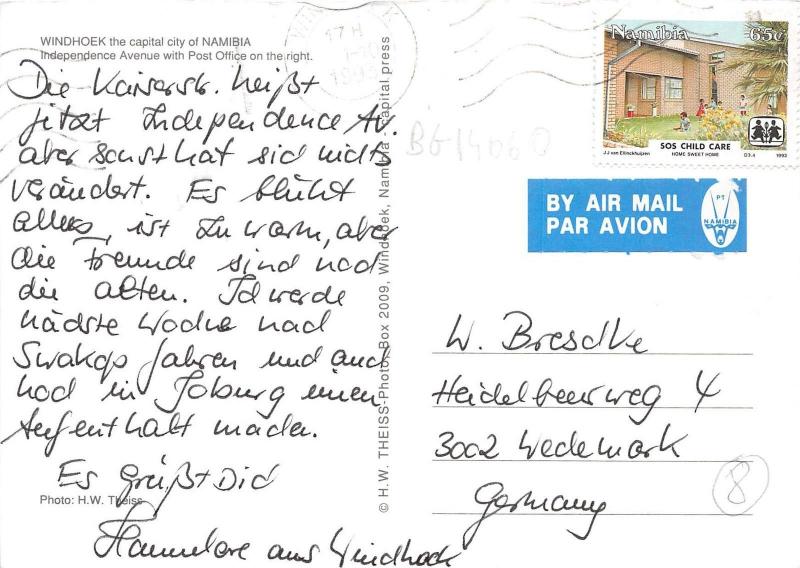 WINDHOEK the capital city of NAMIBIA
Independence Avenue with Post Office on the right.
Die Kaiserstr. heißt
jetzt Independence Av.
aber sonst hat sich nichts
verändert. Es blüht
alles, ist zu warm, aber
die Freunde sind noch
die alten. Ich werde
nächste Woche nach
Swakop fahren und auch
noch in Joburg einen
Aufenthalt machen.
Es grüßt Dich
Hannelore aus Windhoek
Photo: H.W. Theiss
© H.W. THEISS-Photo, Box 2009, Windhoek, Namibia capital press
17 H
1993
BG14060
Namibia 65c
SOS CHILD CARE
HOME SWEET HOME
J.J van Ellinckhuijzen
D3.4 1993
BY AIR MAIL
PAR AVION
PT
NAMIBIA
W. Breschke
Heidelbeerweg 4
3002 Wedemark
Germany
8